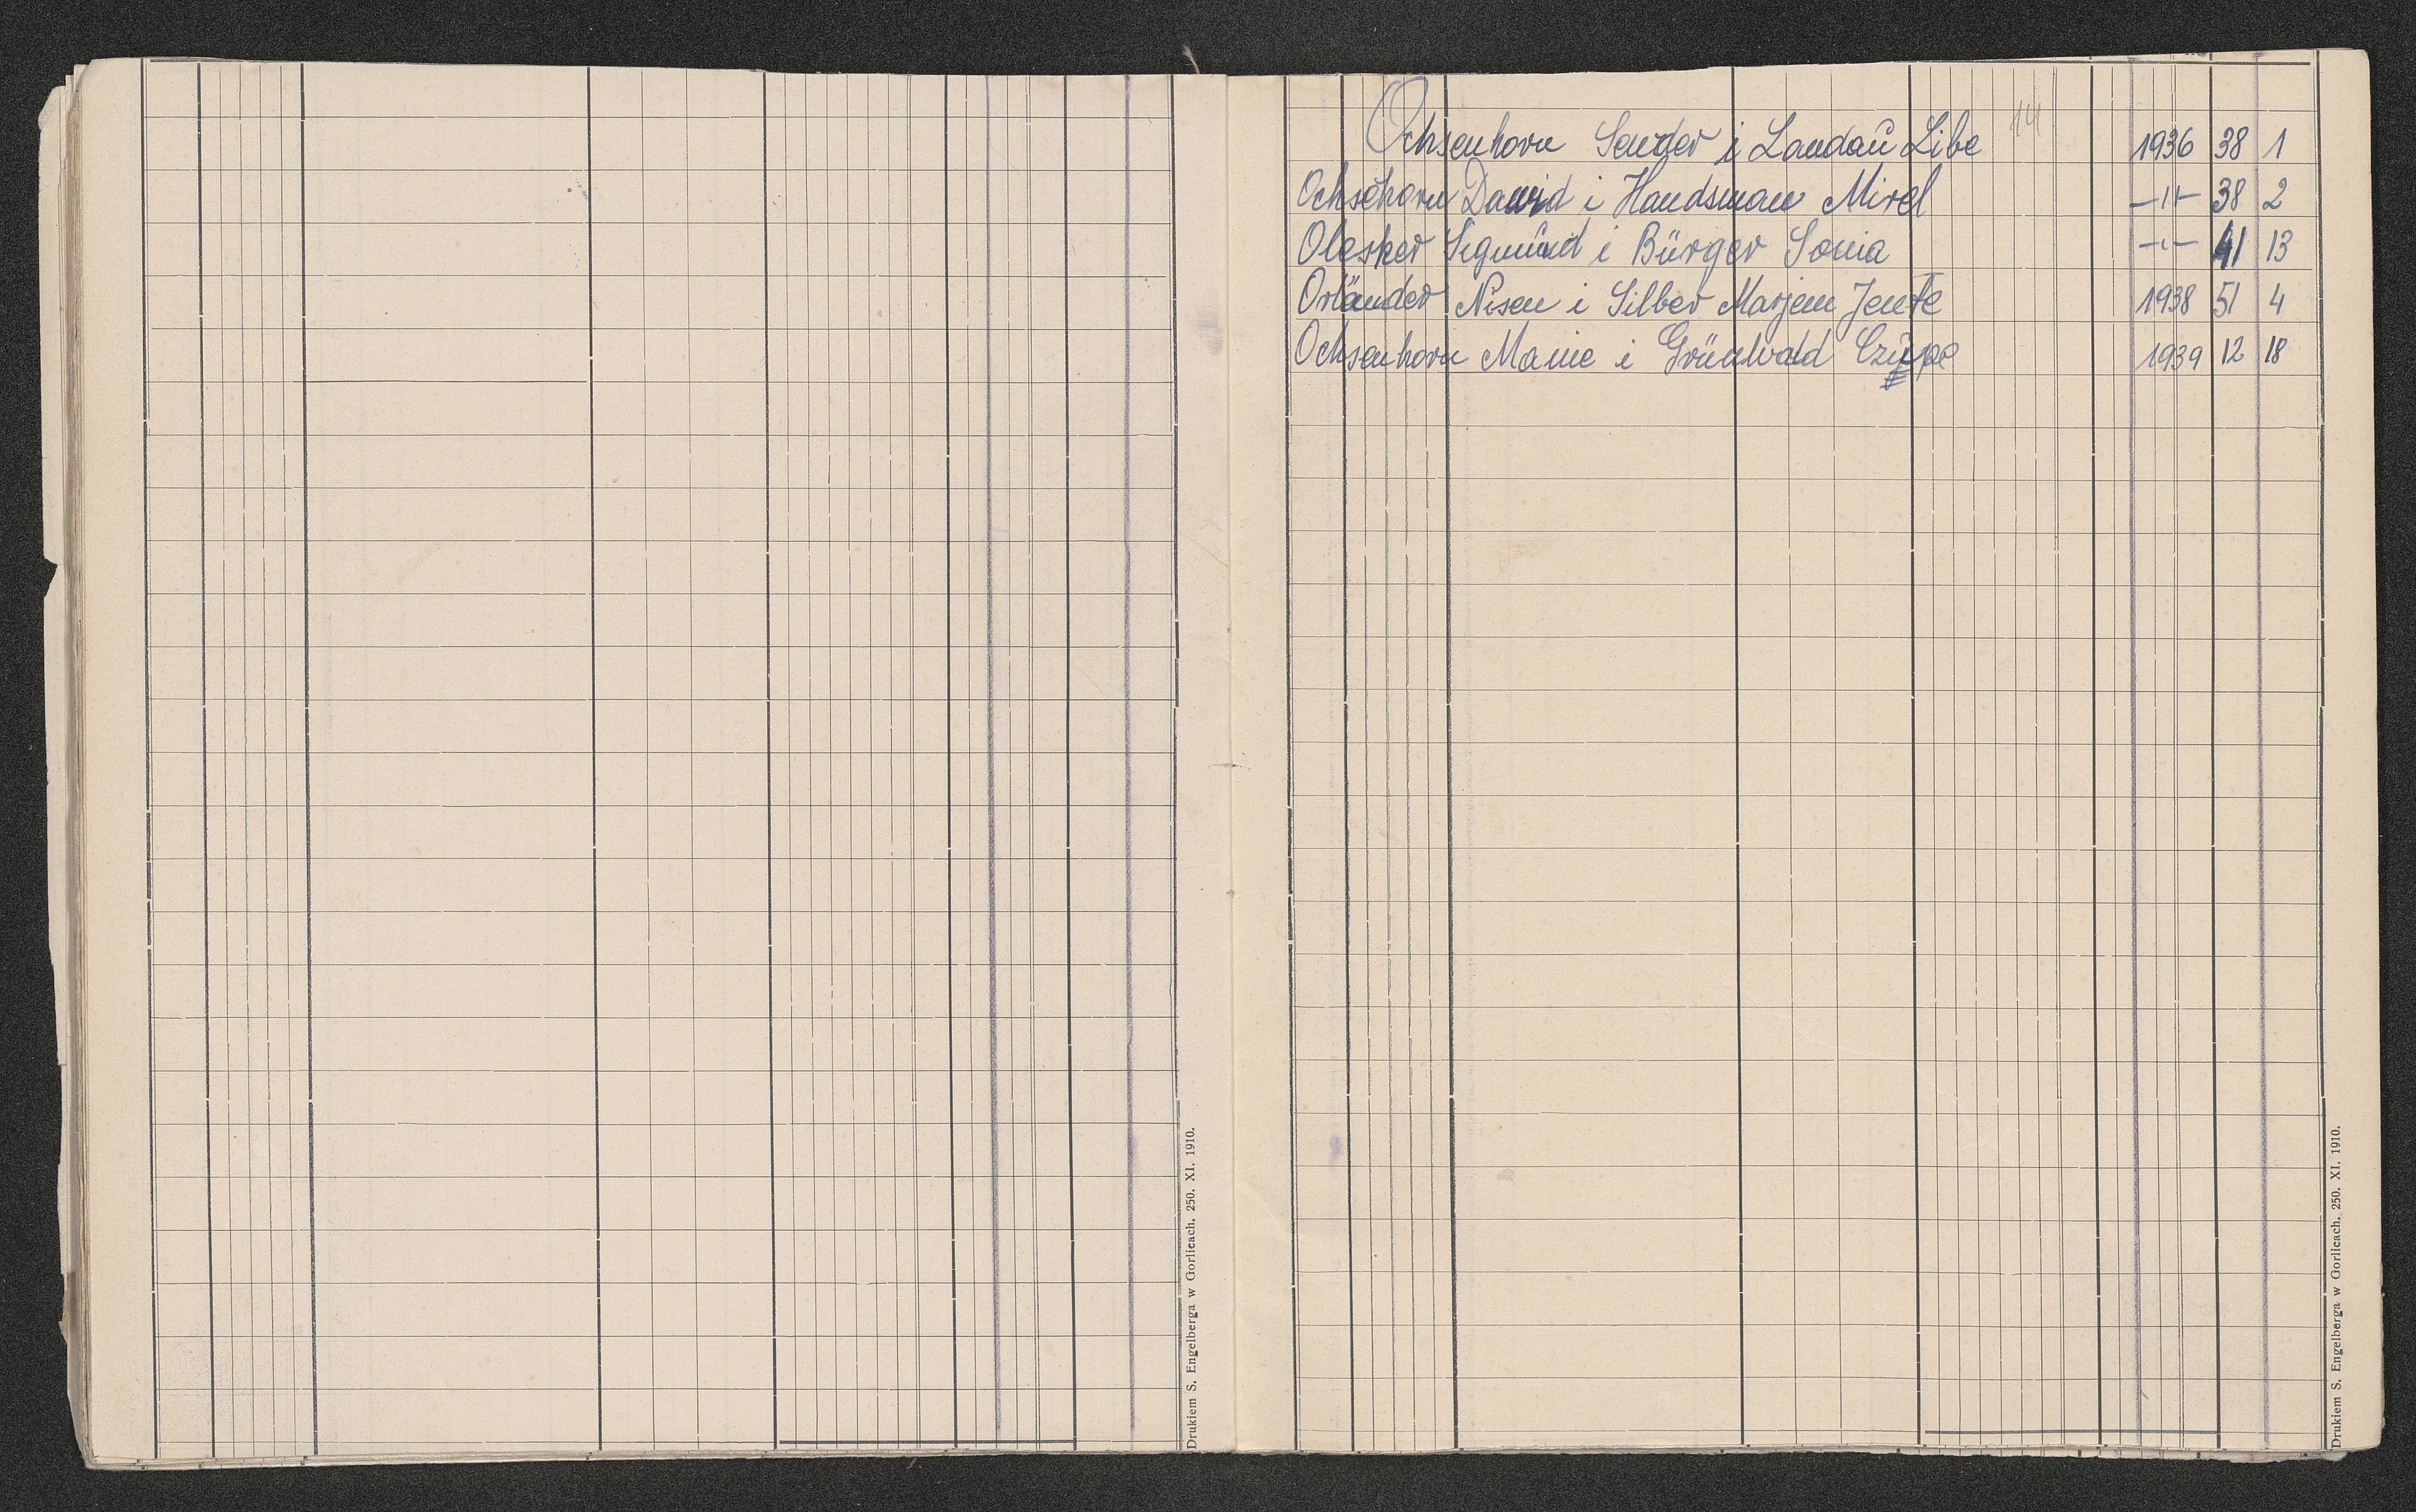 Drukiem S. Engelberga w Gorlicach. 250. XI. 1910.
14
Ochsenhorn Sender i Landau Libe 1936 38 1
Ochsehorn Dawid i Handsman Mirel —〃— 38 2
Olesker Sigmund i Bürger Sonia —〃— 41 13
Orländer Nisen i Silber Marjem Jente 1938 51 4
Ochsenhorn Manie i Grünwald 1939 12 18
Drukiem S. Engelberga w Gorlicach. 250. XI. 1910.